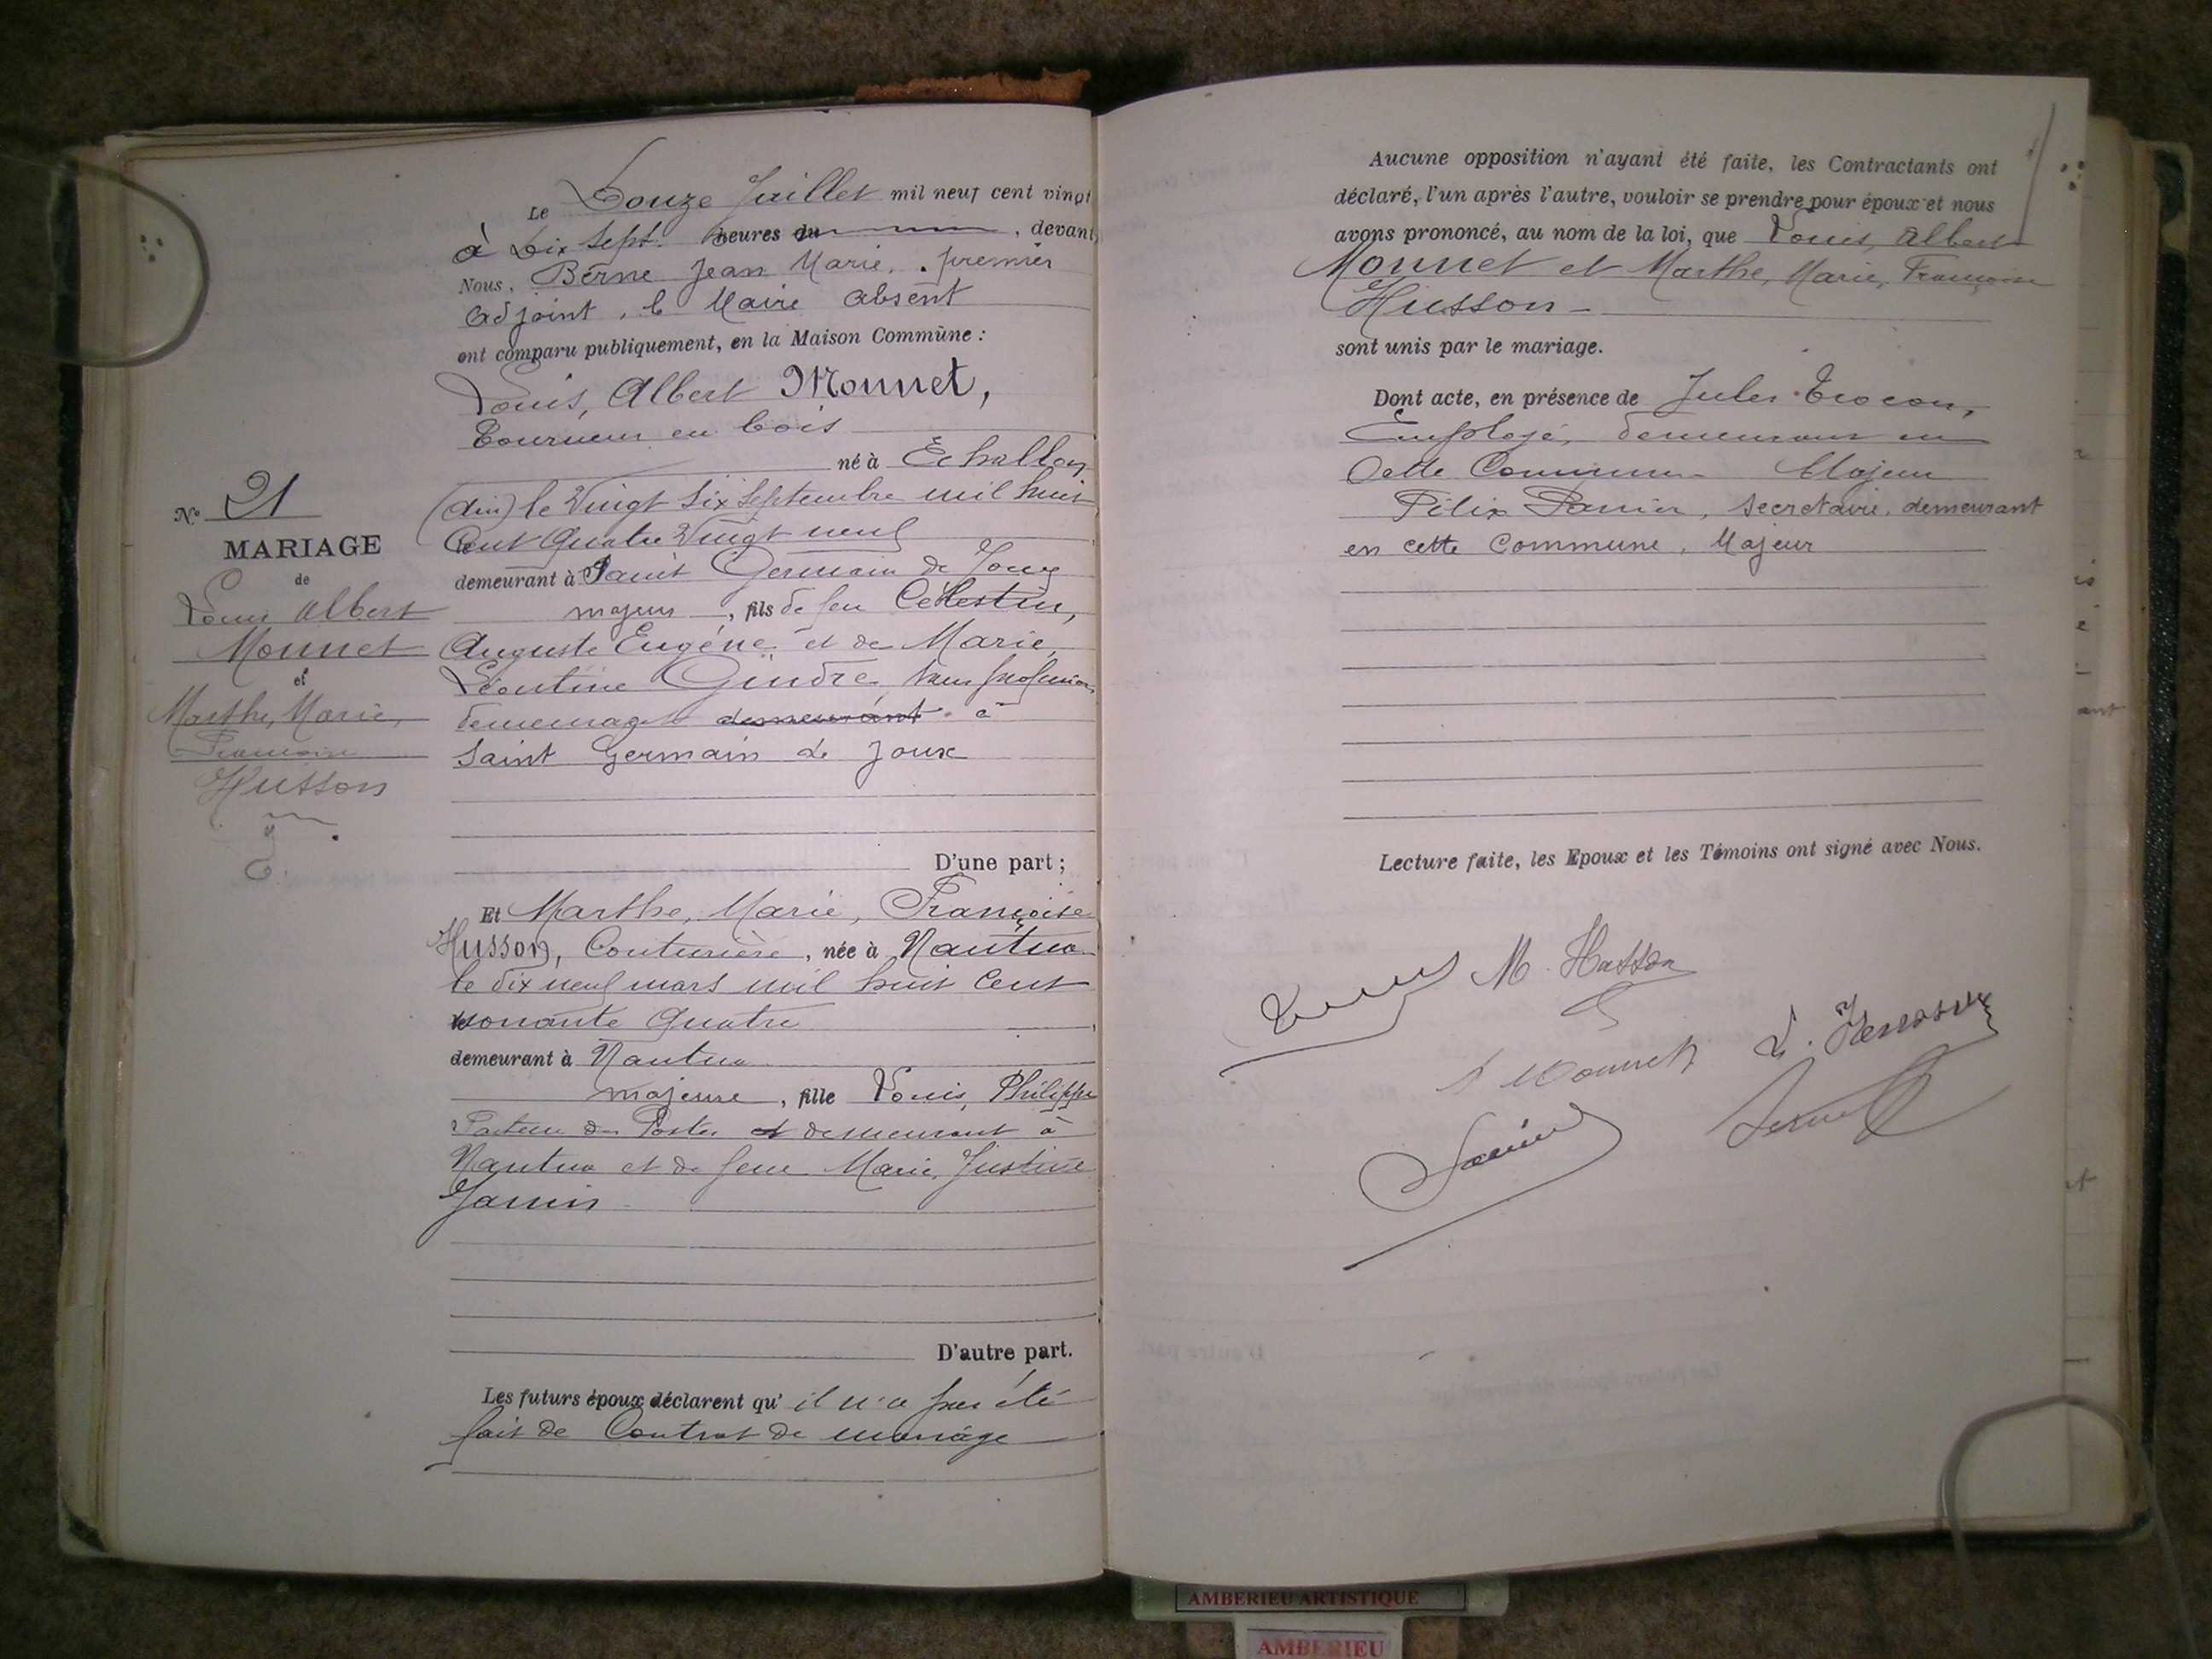 Le Douze Juillet mil neuf cent vingt
à Dix Sept heures du , devant
Nous, Berne Jean Marie, premier
adjoint, le Maire absent
ont comparu publiquement, en la Maison Commune :
Louis, Albert Monnet,
Tourneur en bois
né à Echallon
(Ain) le Vingt Six Septembre mil huit
Cent Quatre Vingt neuf
demeurant à Saint Germain de Joux
majeur, fils de feu Célestin,
Auguste Eugène et de Marie,
Léontine Gindre, sans profession
demeurant demeurant à
Saint Germain de Joux
D'une part ;
N° 21
MARIAGE
de
Louis Albert
Monnet
et
Marthe, Marie,
Françoise
Husson
Et Marthe, Marie, Françoise
Husson, Couturière, née à Nantua
le dix neuf mars mil huit Cent
nonante quatre
demeurant à Nantua
majeure, fille Louis, Philippe
Facteur des Postes et demeurant à
Nantua et de feue Marie, Justine
D'autre part.
Les futurs époux déclarent qu' il n'a pas été
fait de Contrat de mariage
Aucune opposition n'ayant été faite, les Contractants ont
déclaré, l'un après l'autre, vouloir se prendre pour époux et nous
avons prononcé, au nom de la loi, que Louis, Albert
Monnet et Marthe, Marie, Françoise
Husson
sont unis par le mariage.
Dont acte, en présence de Jules
Employé, demeurant en
Cette Commune Majeur
Félix Panier, Secrétaire, demeurant
en cette Commune, Majeur
Lecture faite, les Epoux et les Témoins ont signé avec Nous.
M. Husson
Monnet
AMBERIEU ARTISTIQUE
AMBERIEU